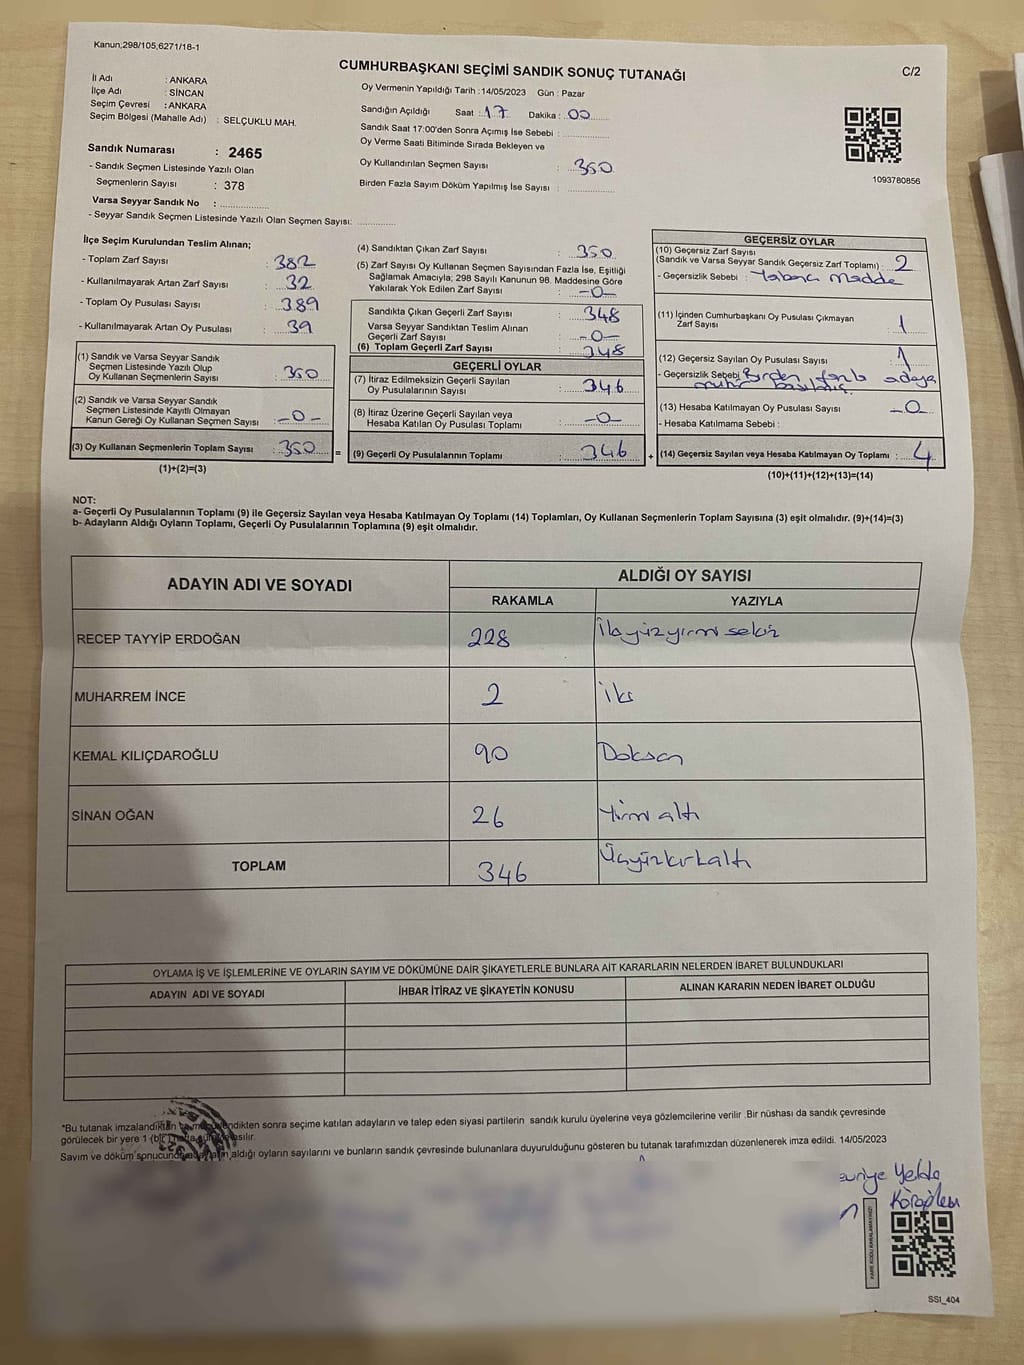 Kanun;298/105,6271/18-1
CUMHURBAŞKANI SEÇİMİ SANDIK SONUÇ TUTANAĞI
C/2
İl Adı : ANKARA
İlçe Adı : SİNCAN
Seçim Çevresi : ANKARA
Seçim Bölgesi (Mahalle Adı) : SELÇUKLU MAH.
Sandık Numarası : 2465
- Sandık Seçmen Listesinde Yazılı Olan
Seçmenlerin Sayısı : 378
Varsa Seyyar Sandık No :
- Seyyar Sandık Seçmen Listesinde Yazılı Olan Seçmen Sayısı:
Oy Vermenin Yapıldığı Tarih : 14/05/2023 Gün : Pazar
Sandığın Açıldığı Saat : 17 Dakika : 00
Sandık Saat 17:00'den Sonra Açımış İse Sebebi :
Oy Verme Saati Bitiminde Sırada Bekleyen ve
Oy Kullandırılan Seçmen Sayısı : 350
Birden Fazla Sayım Döküm Yapılmış İse Sayısı :
1093780856
İlçe Seçim Kurulundan Teslim Alınan;
- Toplam Zarf Sayısı : 382
- Kullanılmayarak Artan Zarf Sayısı : 32
- Toplam Oy Pusulası Sayısı : 389
- Kullanılmayarak Artan Oy Pusulası : 39
(1) Sandık ve Varsa Seyyar Sandık
Seçmen Listesinde Yazılı Olup
Oy Kullanan Seçmenlerin Sayısı : 350
(2) Sandık ve Varsa Seyyar Sandık
Seçmen Listesinde Kayıtlı Olmayan
Kanun Gereği Oy Kullanan Seçmen Sayısı : -0-
(3) Oy Kullanan Seçmenlerin Toplam Sayısı : 350
(1)+(2)=(3)
=
(4) Sandıktan Çıkan Zarf Sayısı : 350
(5) Zarf Sayısı Oy Kullanan Seçmen Sayısından Fazla İse, Eşitliği
Sağlamak Amacıyla; 298 Sayılı Kanunun 98. Maddesine Göre
Yakılarak Yok Edilen Zarf Sayısı : -0-
Sandıkta Çıkan Geçerli Zarf Sayısı : 348
Varsa Seyyar Sandıktan Teslim Alınan
Geçerli Zarf Sayısı : -0-
(6) Toplam Geçerli Zarf Sayısı : 348
GEÇERLİ OYLAR
(7) İtiraz Edilmeksizin Geçerli Sayılan
Oy Pusulalarının Sayısı : 346
(8) İtiraz Üzerine Geçerli Sayılan veya
Hesaba Katılan Oy Pusulası Toplamı : -0-
(9) Geçerli Oy Pusulalarının Toplamı : 346
+
GEÇERSİZ OYLAR
(10) Geçersiz Zarf Sayısı
(Sandık ve Varsa Seyyar Sandık Geçersiz Zarf Toplamı) : 2
- Geçersizlik Sebebi : Yabancı madde
(11) İçinden Cumhurbaşkanı Oy Pusulası Çıkmayan
Zarf Sayısı : 1
(12) Geçersiz Sayılan Oy Pusulası Sayısı : 1
- Geçersizlik Sebebi : Birden fazla adaya
mühür basılmış.
(13) Hesaba Katılmayan Oy Pusulası Sayısı : -0
- Hesaba Katılmama Sebebi :
(14) Geçersiz Sayılan veya Hesaba Katılmayan Oy Toplamı : 4
(10)+(11)+(12)+(13)=(14)
NOT:
a- Geçerli Oy Pusulalarının Toplamı (9) ile Geçersiz Sayılan veya Hesaba Katılmayan Oy Toplamı (14) Toplamları, Oy Kullanan Seçmenlerin Toplam Sayısına (3) eşit olmalıdır. (9)+(14)=(3)
b- Adayların Aldığı Oyların Toplamı, Geçerli Oy Pusulalarının Toplamına (9) eşit olmalıdır.
ADAYIN ADI VE SOYADI
ALDIĞI OY SAYISI
RAKAMLA YAZIYLA
RECEP TAYYİP ERDOĞAN 228 İkiyüzyirmi sekiz
MUHARREM İNCE 2 iki
KEMAL KILIÇDAROĞLU 90 Doksan
SİNAN OĞAN 26 Yirmi altı
TOPLAM 346 Üçyüzkırkaltı
OYLAMA İŞ VE İŞLEMLERİNE VE OYLARIN SAYIM VE DÖKÜMÜNE DAİR ŞİKAYETLERLE BUNLARA AİT KARARLARIN NELERDEN İBARET BULUNDUKLARI
ADAYIN ADI VE SOYADI İHBAR İTİRAZ VE ŞİKAYETİN KONUSU ALINAN KARARIN NEDEN İBARET OLDUĞU
*Bu tutanak imzalandıktan ve mühürlendikten sonra seçime katılan adayların ve talep eden siyasi partilerin sandık kurulu üyelerine veya gözlemcilerine verilir .Bir nüshası da sandık çevresinde
görülecek bir yere 1 (bir) asılır.
Sayım ve döküm sonucunda aldığı oyların sayılarını ve bunların sandık çevresinde bulunanlara duyurulduğunu gösteren bu tutanak tarafımızdan düzenlenerek imza edildi. 14/05/2023
Yelda
KARE KODU KARALAMAYINIZ!
SSI_404